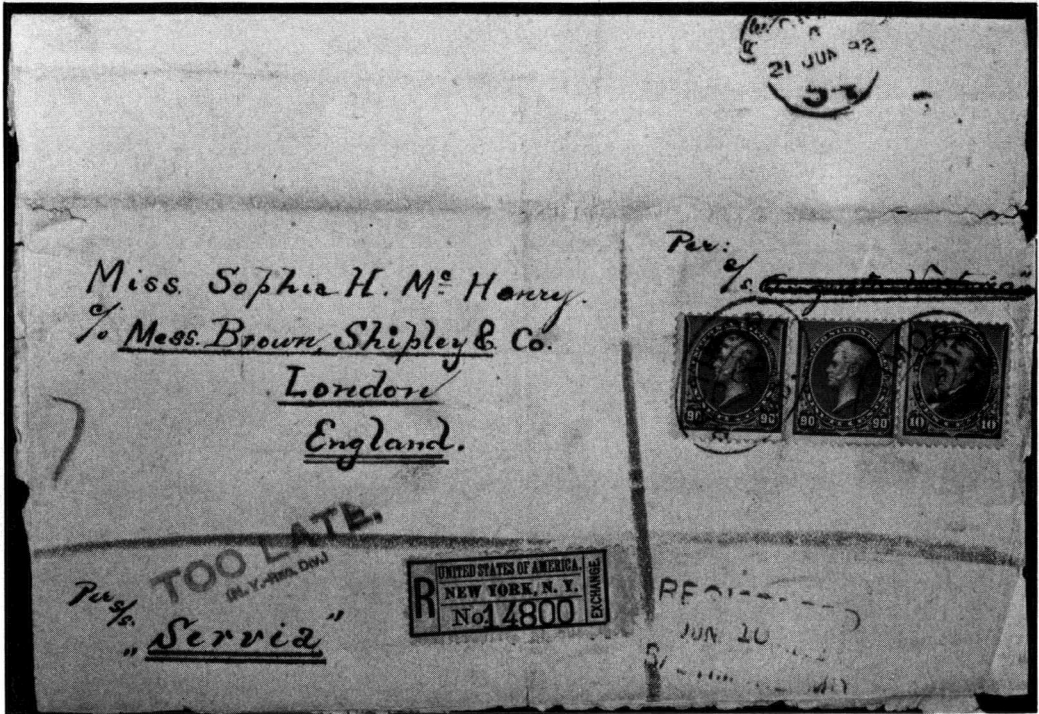 21 JUN 92
Per:
Miss. Sophia H. Mc Henry.
c/o Mess. Brown, Shipley & Co.
London
England.
90 90 90 90 10 10
TOO LATE.
(N. Y.-REG. DIV.)
Per s/s.
"Servia"
R UNITED STATES OF AMERICA.
NEW YORK, N. Y.
No. 14800
EXCHANGE.
JUN 10